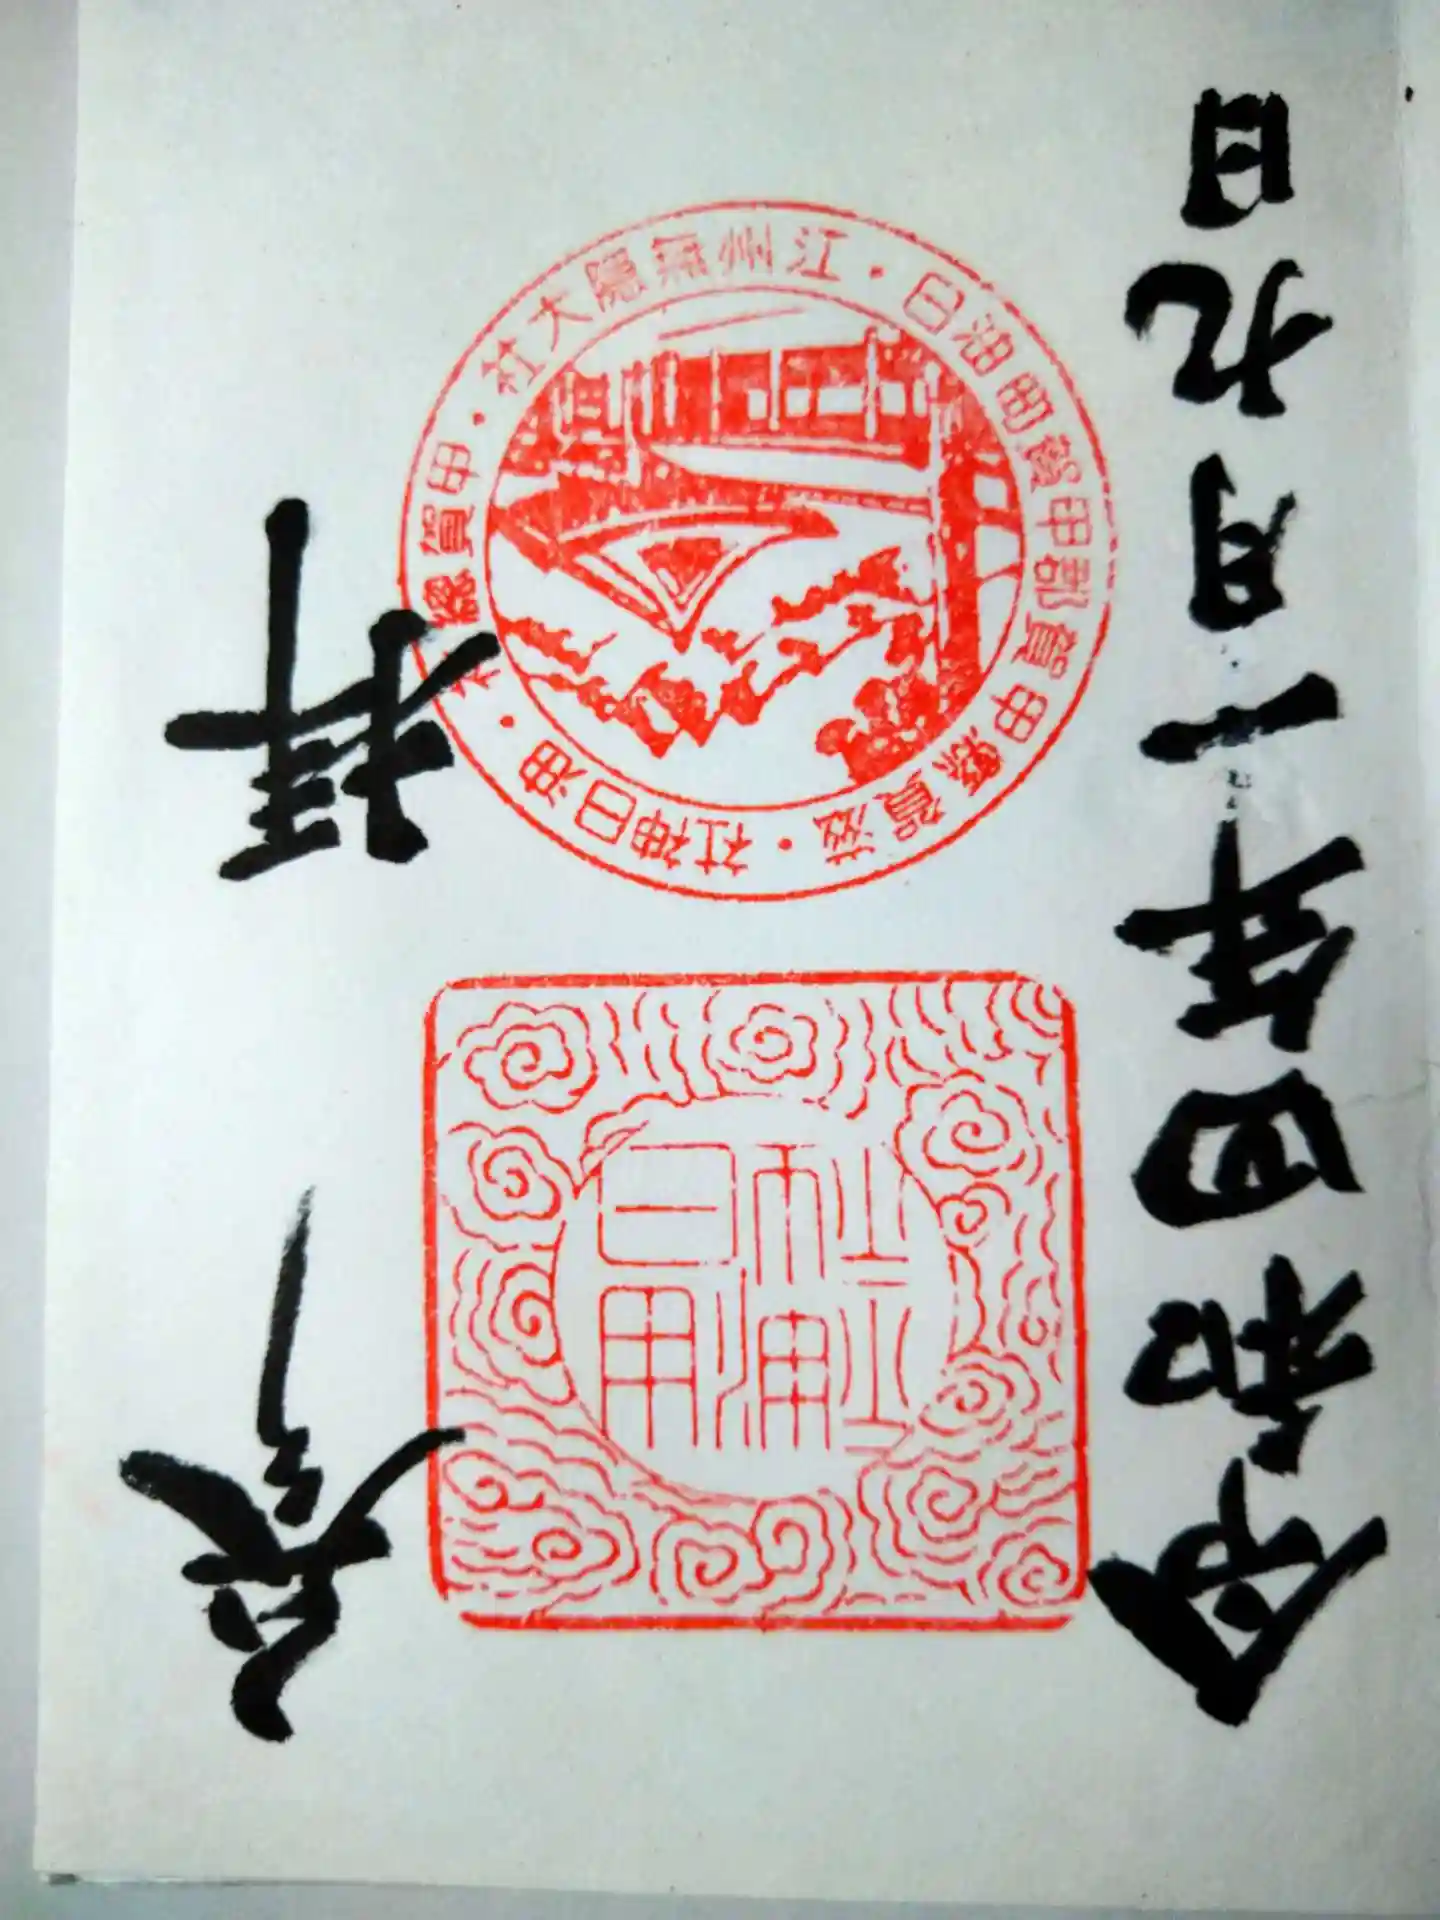 令和四年一月九日
江州無隠大社・甲賀總社・油日神社・滋賀縣甲賀郡甲賀町油日
油日神社
参拝